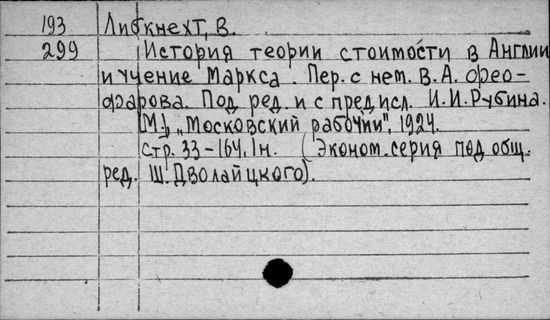 193 Либкнехт, В.
299 История теории стоимости в Англии
и учение Маркса. Пер. с нем. В.А. Фрео-
фарова. Под ред. и с предисл. И.И.Рубина.
М., „Московский рабочий", 1924.
стр. 33-164, 1н. (Эконом.серия под общ.
ред. Ш.Дволайцкого).